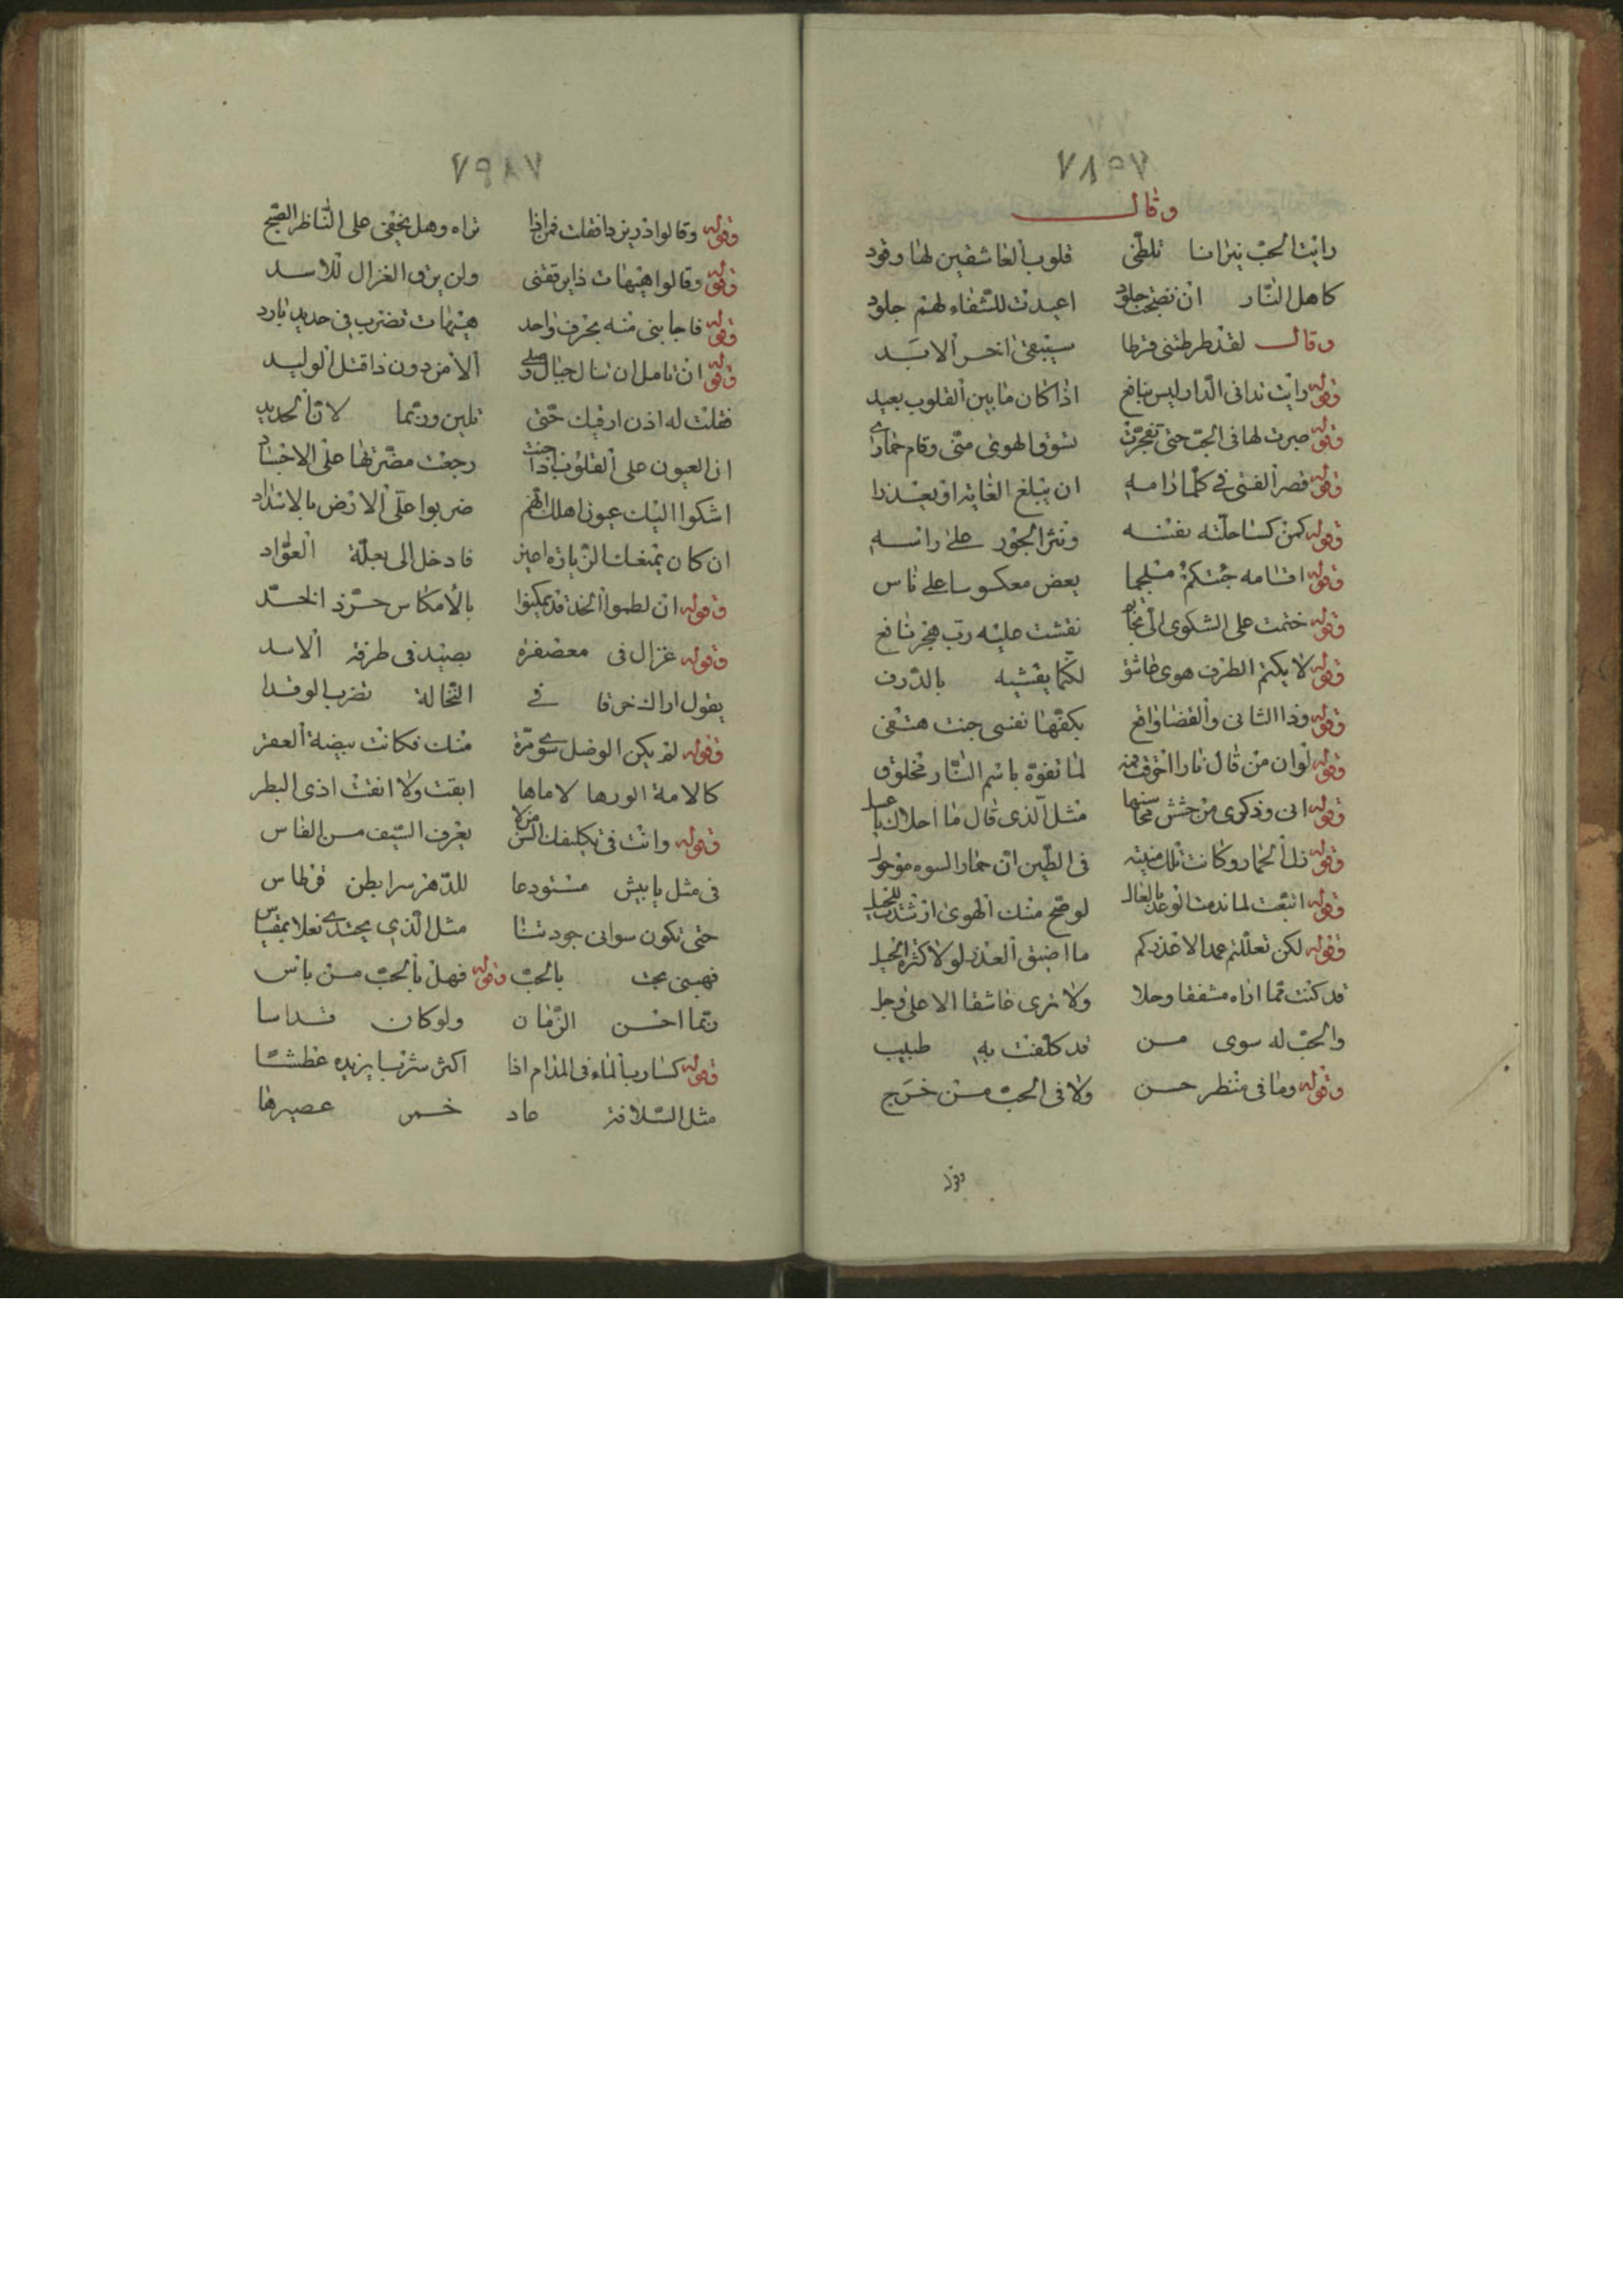 ٧٨ ٩٧
وقال
رايت الحبّ نيرانا تلظّى قلوب العاشقين لها وقود
كاهل النّار ان نضجت جلود اعيدت للشّقاء لهم جلود
وقال لقد طرطتنى فرطا سيبقى اخر الابَد
وقوله رايت تدانى الدّار ليس بنافع اذا كان ما بين القلوب بعيد
وقوله صبرت لها فى الحبّ حتى تفجّرت بشوق الهوى منّى وقام حمارى
وقوله قصر الفتى فى كلّما رامه ان يبلغ الغاية او يعذرا
وقوله كمن كسا حلّته نفسه ونثر الجور على راسه
وقوله اقامه جئتكم ملجما بعض معكوسا على ناس
وقوله ختمت على الشكوى نقشت عليه ربّ هجر نافع
وقوله لا يكتم الطرف هوى عاشق لكنّما يفشيه بالذّرف
وقوله وذا الثانى والقضا واقع بكفّها نفسى جنت هتفى
وقوله لو ان من قال نارا لما تفوّه باسم النّار مخلوق
وقوله انى وذكرى من حسن محاسنها مثل الّذى قال ما احلاك يا عسل
وقوله زلّ الحمار وكانت تلك منيته فى الطّين انّ حمار السوء موحول
وقوله اتبعت لما ندمت الوعد بالعلل لو صحّ منك الهوى ارشدت للحيل
وقوله لكن تعللتم عمدا لاعذركم ما اضيق العذر لولا كثرة الحيل
قد كنت ممّا اراه مشفقا وجلا ولا نرى عاشقا الا على وجل
والحبّ له سوى من قد كلّفت به طبيب
وقوله وما فى منظر حسن ولا فى الحبّ من خَرَج
وقوله
٧٩ ٨٧
وقوله وقالوا اذ ريزدا فقلت تراه وهل يخفى على النّاظر الصّبح
وقوله وقالوا هيهات ذا يرققنى ولن يرق الغزال للاسد
وقوله فاجابنى منه بحرف واحد هيهات تضرب فى حديد بارد
وقوله ان تامل ان تنال حبال وصلى الا من دون ذا قتل الوليد
فقلت له اذن ارقيك حتّى تلين وربّما لان الحديد
ان العيون على القلوب اذا جنت رجعت مضرّتها على الاجساد
اشكوا اليك عيون اهلك انّهم ضربوا على الارض بالاسداد
ان كان يمنعك الزّيارة اعين فادخل الى بعلّة العوّاد
وقوله ان لطموا الخد بالأمكاس حرّ ذا الخدّ
وقوله غزال فى معصفرة يصيد فى طرفه الاسد
يقول اراك خرقا فى النّخالة تضرب الوقدا
وقوله لم يكن الوصل سوى مرّة منك فكانت بيضة العقر
كالامة الورها لا ماها ابقت ولا انقت اذى البطر
وقوله وانت فى تكليفك السّر من لا يعرف السّيف من الفاس
فى مثل يابيش مستودعا للدّهر سرا بطن قرطاس
حتى تكون سوانى جود تنا مثل الّذى يحتذى نعلا بمقياس
فهبنى بحت بالحبّ وقوله فهل بالحبّ من باس
ربّما احسن الزّمان ولو كان قد اسا
وقوله كشارب الماء فى المدام اذا اكثر شربا يزيده عطشًا
مثل السّلافة عاد خمر عصيرها